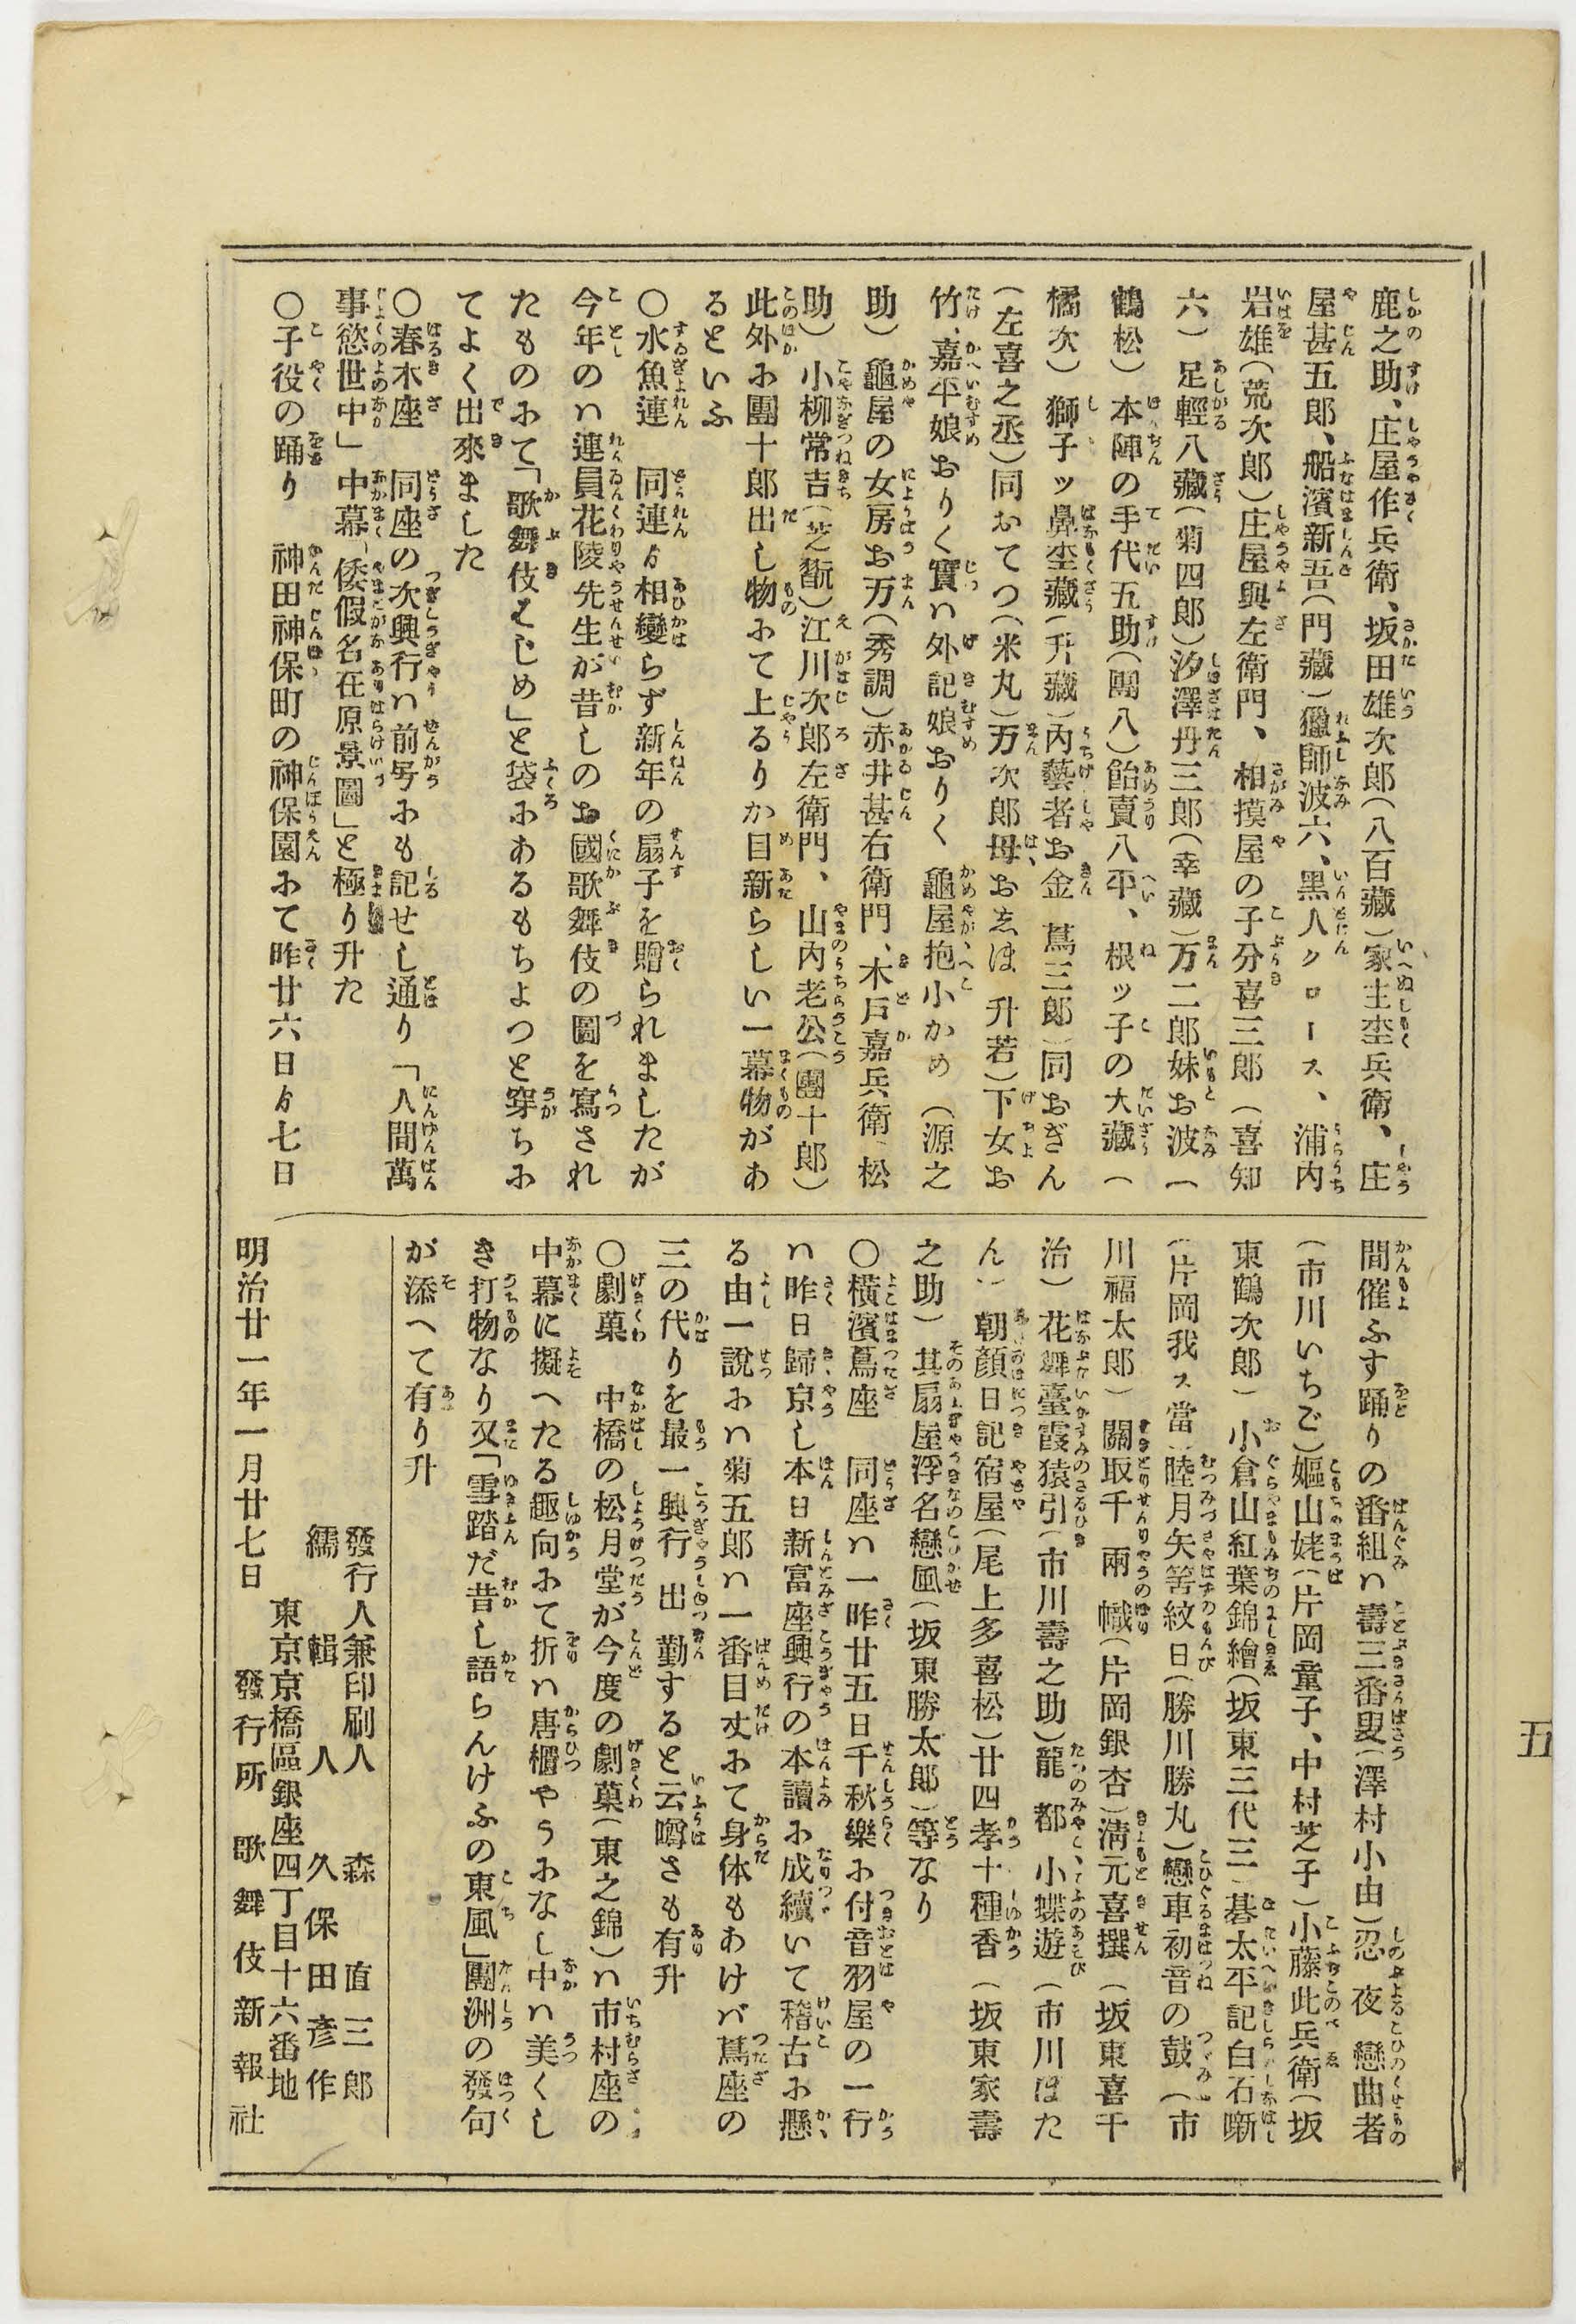 鹿之助、庄屋作兵衛、坂田雄次郎(八百藏)家主杢兵衛、庄
屋甚五郎、船濱新吾(門藏)獵師波六、黒人クロース、浦内
岩雄(荒次郎)庄屋與左衛門、相摸屋の子分喜三郎(喜知
六)足輕八藏(菊四郎)汐澤丹三郎(幸藏)万二郎妹お波(
鶴松)本陣の手代五助(團八)飴賣八平、根ッ子の大藏(
橘次)獅子ッ鼻杢藏(升藏)内藝者お金(蔦三郎)同おぎん
(左喜之丞)同おてつ(米丸)万次郎母おゑほ(升若)下女お
竹、嘉平娘おりく實ハ外記娘おりく(龜屋抱小かめ(源之
助)龜屋の女房お万(秀調)赤井甚右衛門、木戸嘉兵衛(松
助)小柳常吉(芝翫)江川次郎左衛門、山内老公(團十郎)
此外ふ團十郎出し物ふて上るりか目新らしい一幕物があ
るといふ
○水魚連　同連ゟ相變らず新年の扇子を贈られましたが
今年のハ連員花陵先生が昔しのお國歌舞伎の圖を寫され
たものふて「歌舞伎はじめ」と袋ふあるもちよつと穿ちふ
てよく出來ました
○春木座　同座の次興行ハ前号ふも記せし通り「人間萬
事慾世中」中幕「倭假名在原景圖」と極り升た
○子役の踊り　神田神保町の神保園ふて昨廿六日ゟ七日
間催ふす踊りの番組ハ壽三番叟(澤村小由)忍夜戀曲者
(市川いちご)嫗山姥(片岡童子、中村芝子)小藤此兵衛(坂
東鶴次郎)小倉山紅葉錦繪(坂東三代三)碁太平記白石噺
(片岡我ヌ當)睦月矢筈紋日(勝川勝丸)戀車初音の鼓(市
川福太郎)關取千兩幟(片岡銀杏)淸元喜撰(坂東喜千
治)花舞臺霞猿引(市川壽之助)龍都小蝶遊(市川ぼた
ん)朝顔日記宿屋(尾上多喜松)廿四孝十種香(坂東家壽
之助)其扇屋浮名戀風(坂東勝太郎)等なり
○横濱蔦座　同座ハ一昨廿五日千秋樂ふ付音羽屋の一行
ハ昨日歸京し本日新富座興行の本讀ふ成續いて稽古ふ懸
る由一說ふハ菊五郎ハ一番目丈ふて身体もあけバ蔦座の
三の代りを最一興行出勤すると云噂さも有升
○劇菓　中橋の松月堂が今度の劇菓(東之錦)ハ市村座の
中幕に擬へたる趣向ふて折ハ唐櫃やうふなし中ハ美くし
き打物なり又「雪踏だ昔し語らんけふの東風」團洲の發句
が添へて有り升
發行人兼印刷人　森　直三郎
編輯人　久保田彦作
東京京橋區銀座四丁目十六番地
發行所　歌舞伎新報社
明治廿一年一月廿七日
五